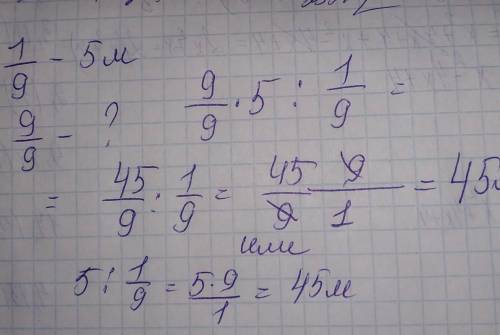 1/9 - 5м
9/9 - ? 9/9 · 5 : 1/9 =
= 45/9 : 1/9 = 45 9/9 1 = 45м
или
5 : 1/9 = 5·9/1 = 45м